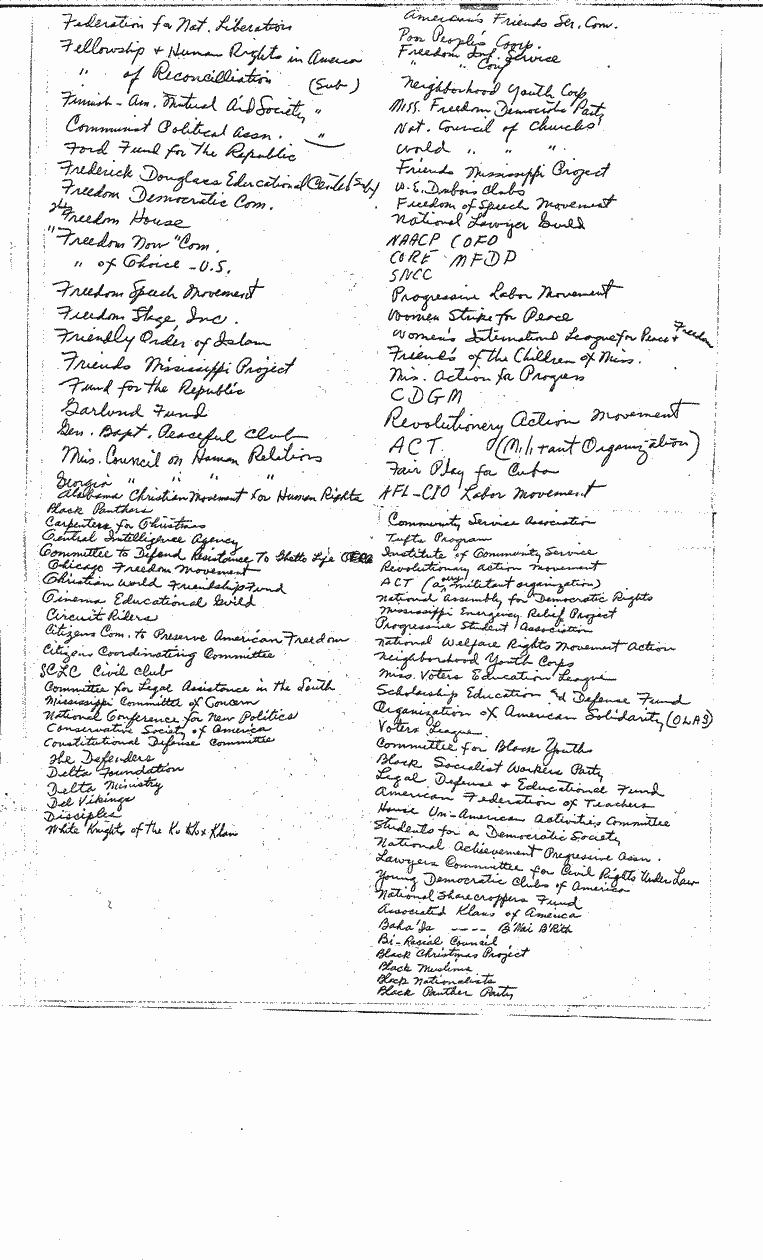 Federation for Nat. Liberation
Fellowship + Human Rights in America
" of Reconcilliation (Sub)
Finnish-Am. Mutual Aid Society "
Communist Political Assn. "
Ford Fund for The Republic
Frederick Douglass Educational Center (Sub)
Freedom Democratic Com.
The Freedom House
"Freedom Now" Com.
" of Choice - U.S.
Freedom Speech Movement
Freedom Stage, Inc.
Friendly Order of Islam
Friends Mississippi Project
Fund for the Republic
Garland Fund
Gen. Bapt. Peaceful Club
Miss. Council on Human Relations
Georgia " " " "
Alabama Christian Movement for Human Rights
Black Panthers
Carpenters for Christmas
Central Intelligence Agency
Committee to Defend Resistance To Ghetto Life
Chicago Freedom Movement
Christian World Friendship Fund
Cinema Educational Guild
Circuit Riders
Citizens Com. to Preserve American Freedom
Citizens Coordinating Committee
SCLC Civil Club
Committee for Legal Assistance in the South
Mississippi Committee of Concern
National Conference for New Politics
Conservative Society of America
Constitutional Defense Committee
The Defenders
Delta Foundation
Delta Ministry
Del Vikings
Disciples
White Knights of the Ku Klux Klan
American's Friends Ser. Com.
Poor People's Corp.
Freedom Inf. Service
" " Conf
Neighborhood Youth Corp
Miss. Freedom Democratic Party
Nat. Council of Churches
World " " "
Friends Mississippi Project
W.E. Dubois Clubs
Freedom of Speech Movement
National Lawyer Guild
NAACP COFO
CORE MFDP
SNCC
Progressive Labor Movement
Women Strike for Peace
Women's International League for Peace + Freedom
Friend's of the Children of Miss.
Mis. Action for Progress
CDGM
Revolutionery Action Movement
ACT. (Militant Organization)
Fair Play for Cuba
AFL-CIO Labor Movement
Community Service Association
Tufts Program
Institute of Community Service
Revolutionary action movement
ACT (a militant organization)
National Assembly for Democratic Rights
Mississippi Emergency Relief Project
Progressive Student Association
National Welfare Rights Movement Action
Neighborhood Youth Corps
Miss. Voters Education League
Scholarship Education & Defense Fund
Organization of American Solidarity (OLAS)
Voters League
Committee for Bloom Youths
Black Socialist Workers Party
Legal Defense + Educational Fund
American Federation of Teachers
House Un-American Activities Committee
Students for a Democratic Society
National Achievement Progessive Assn.
Lawyers Committee for Civil Rights Under Law
Young Democratic Clubs of America
National Sharecroppers Fund
Associated Klans of America
Baha'Is ---- B'Nai B'Rith
Bi-Racial Council
Black Christmas Project
Black Muslims
Black Nationalists
Black Panther Party